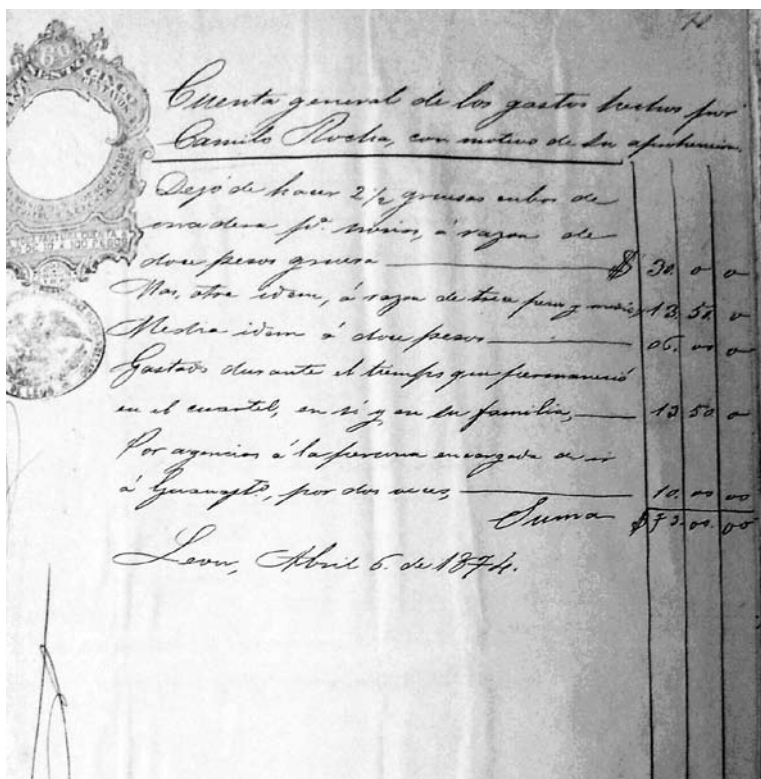 Cuenta general de los gastos hechos por
Camilo Rocha, con motivo de su aprehension.
Dejó de hacer 2 1/2 gruesas cubos de
madera pa. á razon de
doce pesos gruesa $ 30. 0 0
Mas, otra idem, á razon de trece pesos y medio, 13. 50. 0
Media idem á doce pesos 06. 00 0
Gastado durante el tiempo que permaneció
en el cuartel, en sí y en su familia, 13 50 0
Por agencias á la persona encargada de ir
á Guanajto., por dos veces, 10. 00 00
Suma $73. 00. 00
Leon, Abril 6. de 1874.